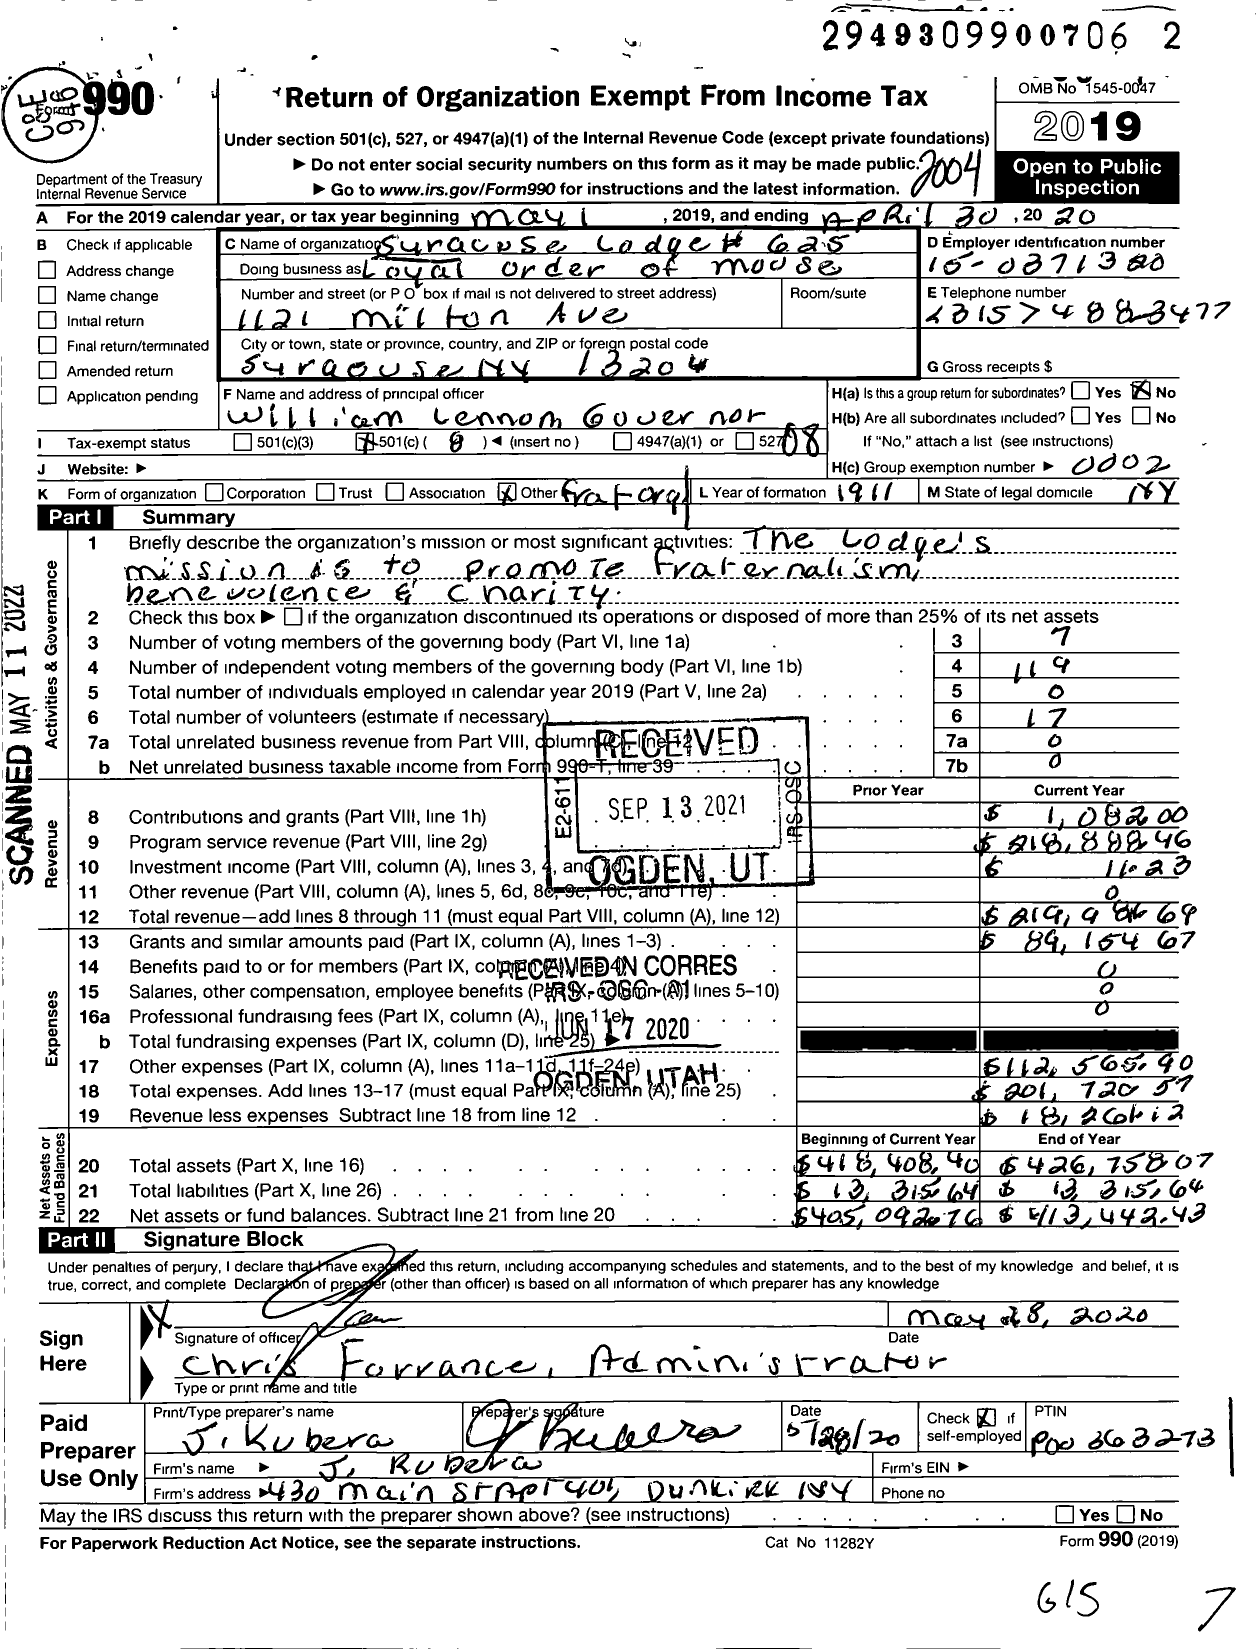 2949309900706 2
Form 990
Return of Organization Exempt From Income Tax
Under section 501(c), 527, or 4947(a)(1) of the Internal Revenue Code (except private foundations)
▶ Do not enter social security numbers on this form as it may be made public.
▶ Go to www.irs.gov/Form990 for instructions and the latest information.
2004
OMB No 1545-0047
2019
Open to Public Inspection
Department of the Treasury
Internal Revenue Service
A For the 2019 calendar year, or tax year beginning May 1, 2019, and ending April 30, 2020
B Check if applicable
Address change
Name change
Initial return
Final return/terminated
Amended return
Application pending
C Name of organization Syracuse Lodge # 625
Doing business as Loyal Order of Moose
Number and street (or P O box if mail is not delivered to street address) Room/suite
1121 Milton Ave
City or town, state or province, country, and ZIP or foreign postal code
Syracuse NY 13204
D Employer identification number
E Telephone number
G Gross receipts $
F Name and address of principal officer
William Lennon Governor
H(a) Is this a group return for subordinates? Yes X No
H(b) Are all subordinates included? Yes No
If "No," attach a list (see instructions)
H(c) Group exemption number ▶ 0002
I Tax-exempt status 501(c)(3) X 501(c) ( 8 ) ◀ (insert no) 4947(a)(1) or 527 08
J Website: ▶
K Form of organization Corporation Trust Association X Other Frat org
L Year of formation 1911
M State of legal domicile NY
Part I Summary
1 Briefly describe the organization's mission or most significant activities: The Lodge's
mission is to promote fraternalism,
benevolence & charity.
2 Check this box ▶ if the organization discontinued its operations or disposed of more than 25% of its net assets
3 Number of voting members of the governing body (Part VI, line 1a) 3 7
4 Number of independent voting members of the governing body (Part VI, line 1b) 4 119
5 Total number of individuals employed in calendar year 2019 (Part V, line 2a) 5 0
6 Total number of volunteers (estimate if necessary) 6 17
7a Total unrelated business revenue from Part VIII, column (C), line 12 7a 0
b Net unrelated business taxable income from Form 990-T, line 39 7b 0
Prior Year Current Year
8 Contributions and grants (Part VIII, line 1h) $ 1,082.00
9 Program service revenue (Part VIII, line 2g) $ 218,888.46
10 Investment income (Part VIII, column (A), lines 3, 4, and 7d) $ 11.23
11 Other revenue (Part VIII, column (A), lines 5, 6d, 8c, 9c, 10c, and 11e) 0
12 Total revenue—add lines 8 through 11 (must equal Part VIII, column (A), line 12)
13 Grants and similar amounts paid (Part IX, column (A), lines 1–3) $ 89,154 67
14 Benefits paid to or for members (Part IX, column (A), line 4) 0
15 Salaries, other compensation, employee benefits (Part IX, column (A), lines 5–10) 0
16a Professional fundraising fees (Part IX, column (A), line 11e) 0
b Total fundraising expenses (Part IX, column (D), line 25) ▶
17 Other expenses (Part IX, column (A), lines 11a–11d, 11f–24e) $112,565.90
18 Total expenses. Add lines 13–17 (must equal Part IX, column (A), line 25) $ 201,720 57
19 Revenue less expenses Subtract line 18 from line 12 $ 18,261.12
Beginning of Current Year End of Year
20 Total assets (Part X, line 16) $418,408.40 $426,758 07
21 Total liabilities (Part X, line 26) $ 13,315.64 $ 13,315.64
22 Net assets or fund balances. Subtract line 21 from line 20 $405,092.76 $ 413,442.43
Activities & Governance
Revenue
Expenses
Net Assets or Fund Balances
SCANNED MAY 11 2022
RECEIVED
E2-611
SEP 13 2021
IRS-OSC
OGDEN, UT
RECEIVED IN CORRES
IRS - OSC - 01
JUN 17 2020
OGDEN, UTAH
Part II Signature Block
Under penalties of perjury, I declare that I have examined this return, including accompanying schedules and statements, and to the best of my knowledge and belief, it is
true, correct, and complete Declaration of preparer (other than officer) is based on all information of which preparer has any knowledge
Sign Here
X
May 28, 2020
Signature of officer Date
Chris Farrance, Administrator
Type or print name and title
Paid Preparer Use Only
Print/Type preparer's name Preparer's signature Date Check X if self-employed PTIN
J. Kubera J Kubera 5/28/20 P00363273
Firm's name ▶ J. Kubera Firm's EIN ▶
Firm's address ▶ 430 Main St Apt 401, Dunkirk NY Phone no
May the IRS discuss this return with the preparer shown above? (see instructions) Yes No
For Paperwork Reduction Act Notice, see the separate instructions. Cat No 11282Y Form 990 (2019)
G15 7